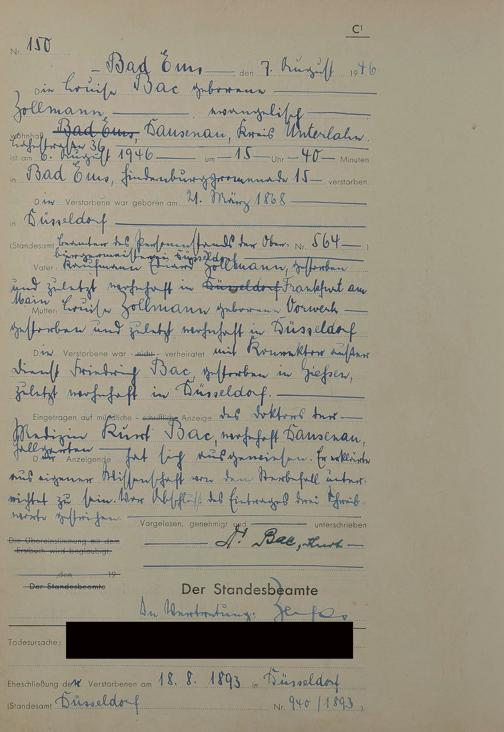 C¹
Nr. 150
Bad Ems den 7. August 1946
Die Louise Bac geborene
Zollmann evangelisch
wohnhaft Bad Ems, Dausenau, Kreis Unterlahn.
Lahnstrasse 36,
ist am 6. August 1946 um 15 Uhr 40 Minuten
in Bad Ems, Hindenburgpromenade 15 verstorben.
Die Verstorbene war geboren am 21. März 1868
in Düsseldorf
(Standesamt Beamter des Personenstands der Ober- Nr. 564)
bürgermeisterei Düsseldorf
Vater: Kaufmann Eduard Zollmann, gestorben
und zuletzt wohnhaft in Düsseldorf Frankfurt am
Main
Mutter: Louise Zollmann geborene Vorwerk
gestorben und zuletzt wohnhaft in Düsseldorf
Die Verstorbene war nicht verheiratet mit Konrektor außer
Dienst Friedrich Bac, gestorben in Giessen,
zuletzt wohnhaft in Düsseldorf.
Eingetragen auf mündliche - schriftliche Anzeige des Doktors der
Medizin Kurt Bac, wohnhaft Dausenau,
Der Anzeigende hat sich ausgewiesen. Er erklärte
aus eigener Wissenschaft von dem Sterbefall unter-
richtet zu sein. Vor Abschluß des Eintrages drei Schreib-
worte gestrichen.
Vorgelesen, genehmigt und unterschrieben
Dr. Bac, Kurt
Die Übereinstimmung mit dem
Erstbuch wird beglaubigt
den 19
Der Standesbeamte
Der Standesbeamte
In Vertretung:
Todesursache:
Eheschließung der Verstorbenen am 18. 8. 1893 in Düsseldorf
(Standesamt Düsseldorf Nr. 940/1893)